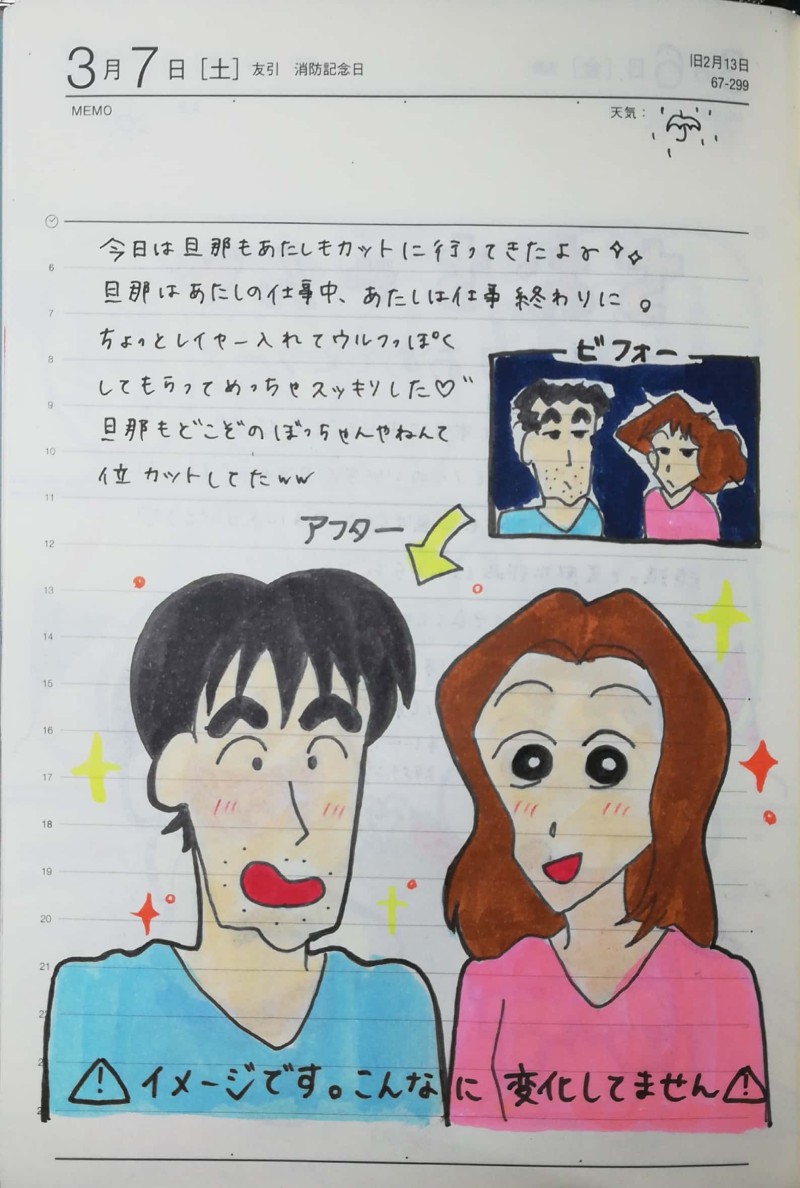 3月7日［土］ 友引 消防記念日
旧2月13日
67-299
MEMO
天気：
今日は旦那もあたしもカットに行ってきたよ〜✧✧
旦那はあたしの仕事中、あたしは仕事終わりに。
ちょっとレイヤー入れてウルフっぽく
してもらってめっちゃスッキリした♡〃
旦那もどこぞのぼっちゃんやねんて
位カットしてたww
ビフォー
アフター
6
7
8
9
10
11
12
13
14
15
16
17
18
19
20
21
⚠イメージです。こんなに変化してません⚠